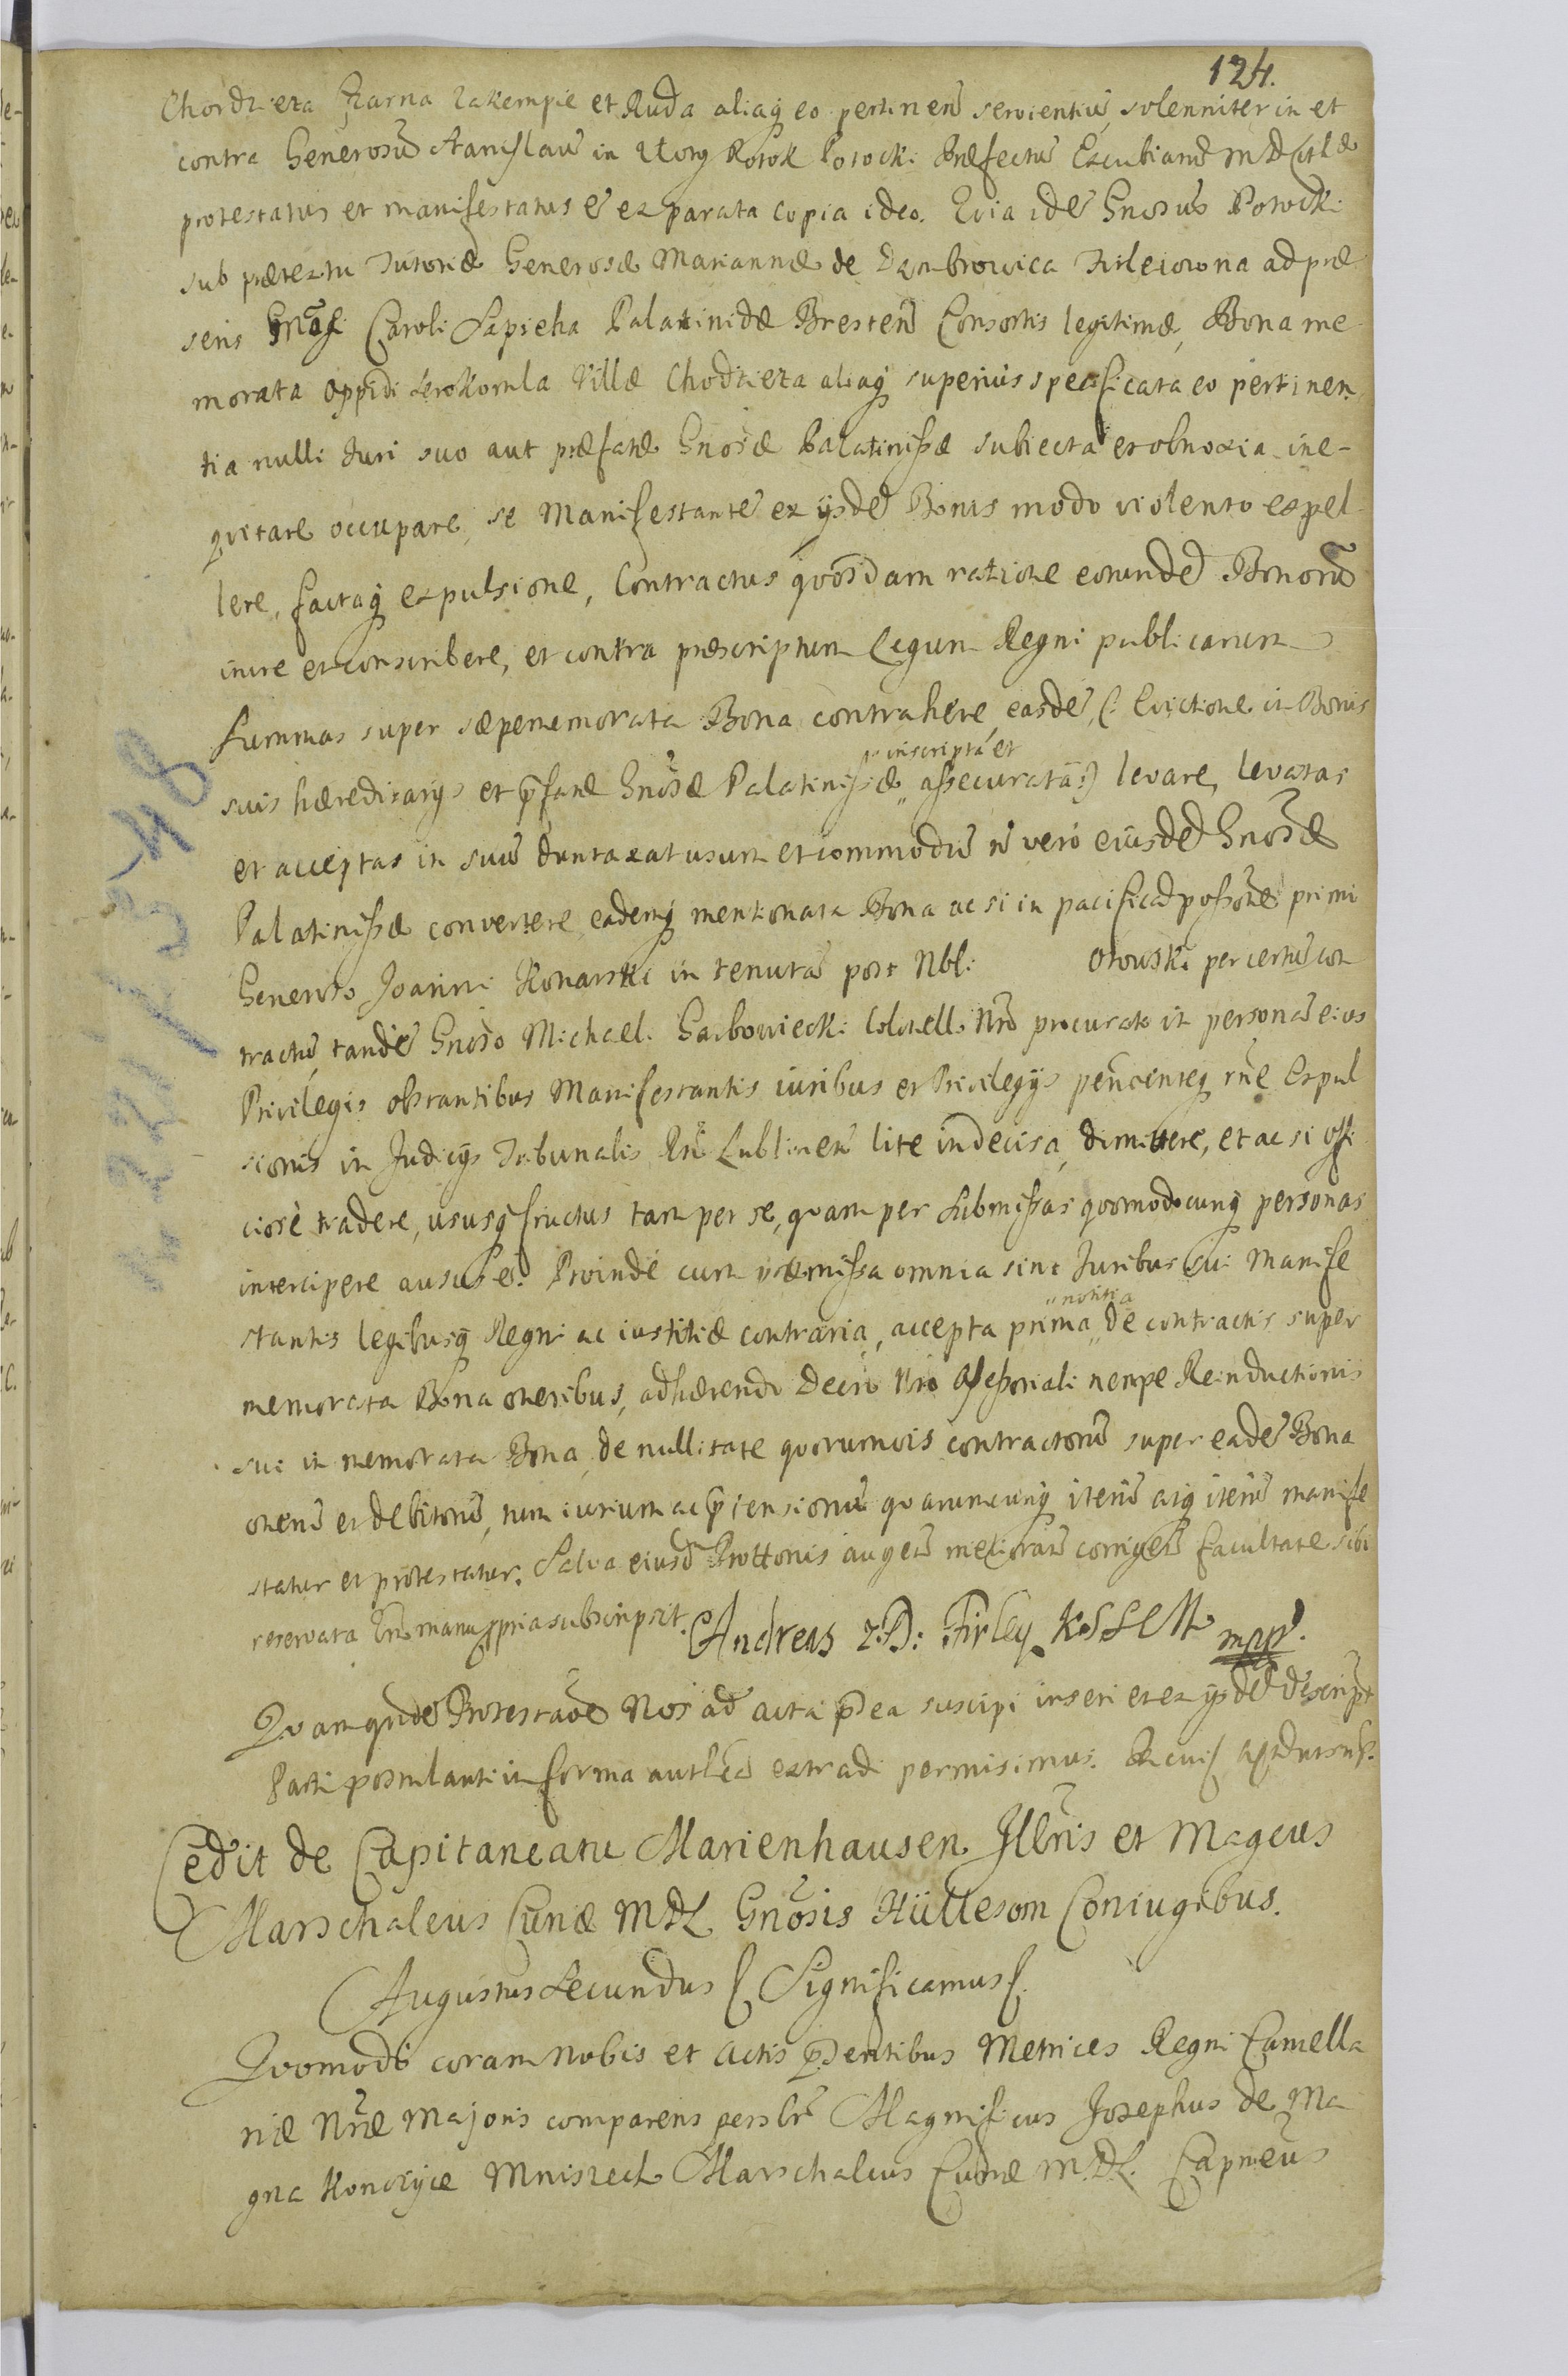 124.
Chodzieza Czarna Zakempie et Ruda aliaq eo pertinen servientiũ, solenniter in et
contra Generosũ Stanislaũ in Potok Potocki Præfectũ Excubiarũ MDLitlæ
protestatus et manifestatus ẽ ex parata copia ideo. Quia idẽ Gnosus Potocki
sub prætextu Tutoriæ Generosæ Mariannæ de Dąmbrowica Firleiowna ad præ
sens Caroli Sapieha Palatinidæ Bresten Consortis legitimæ, Bona me
morata Oppidi Serokomla Villæ Chodzieza aliaq superius specificata eo pertinen
tia nulli Juri suo aut præfatæ Gnosæ Palatinissæ subiecta et obnoxia ine-
quitare occupare, se Manifestantẽ ex ijsdẽ Bonis modo violento expel
lere, factaq expulsione, Contractus quosdam ratione eorundẽ Bonorũ
inire et conscribere, et contra præscriptum Legum Regni publicarum
Summas super sæpememorata Bona contrahere, easdẽ (: Evictione in Bonis
suis hæreditarijs et pfatæ Gnosæ Palatinissæ „ inscriptã et assecuratã:) levare, levatas
et acceptas in suũ duntaxat usum et commodũ ñ verò eiusdẽ Gnosæ
Palatinissæ convertere, eademq mentionata Bona ac si in pacifica possõne primi
Generoso Joanni Konarski in tenutã post Nbl: otowski per certũ con
tractũ, tandẽ Gnoso Michaeli Garbowiecki Colonello Nro procurato in personã eius
Privilegio obstantibus Manifestantis iuribus et Privilegijs pendenteq rñe Expul
sionis in Judicijs Tribunalis Rni Lublinen lite indecisa, dimittere, et ac si offi
ciosè tradere, ususq fructus tam per se, quam per submissas quomodocunq personas
intercipere ausus ẽ. Proindè cum præmissa omnia sint Juribus sui Manife
stantis legibusq Regni ac iustitiæ contraria, accepta prima „ notitia de contractis super
memorata Bona oneribus, adhærendo Decro Nro Assessoriali nempe Reinductionis
sui in memorata Bona, de nullitate quorumvis contractorũ super eadẽ Bona
onerũ et debitorũ, tum iurium ac ptensionũ quarumcunq iterũ atq iterũ manife
statur et protestatur. Salva eiusd Prottonis augen meliorañ corrigen facultate sibi
reservata manu ppria subscripsit. Andreas z D: Firley K S S C M mpp.
Quamquidẽ Protestaõẽ Nos ad acta pñ ea suscipi inseri et ex ijsdẽ descript
Parti postulanti in forma authẽ extradi permisimus. In cuius
Cedit de Capitaneatu Marienhausen Illris et Magcus
Marschalcus Curiæ MDL Gñosis Hülsesom Coniugibus.
Augustus Secundus Significamus
Quomodò coram Nobis et Actis pñdentibus Metrices Regni Cancella
riæ Nræ Majoris comparens persolr Magnificus Josephus de Ma
gna Konczyce Mniszech Marschalcus Curiæ M.D.L. Capneus